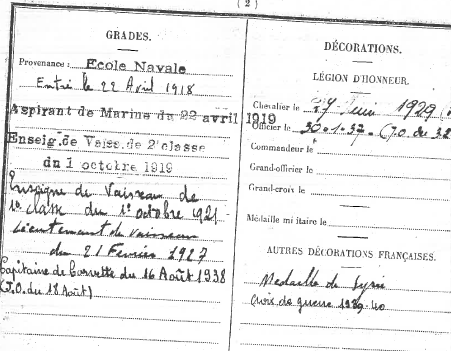 ( 2 )
GRADES.
Provenance : Ecole Navale
Entré le 22 Avril 1918
Aspirant de Marine du 22 avril 1919
Enseig.de Vaiss.de 2°classe
du 1 octobre 1919
Enseigne de Vaisseau de
1e classe du 1e octobre 1921
Lieutenant de vaisseau
du 21 Fevrier 1927
Capitaine de Corvette du 16 Août 1938
(J.O. du 18 Août)
DÉCORATIONS.
LÉGION D'HONNEUR.
Chevalier le Juin 1929
Officier le 30.1.37. (J.O. du
Commandeur le
Grand-officier le
Grand-croix le
Médaille militaire le
AUTRES DÉCORATIONS FRANÇAISES.
Medaille de Syrie
Croix de guerre 1939-40